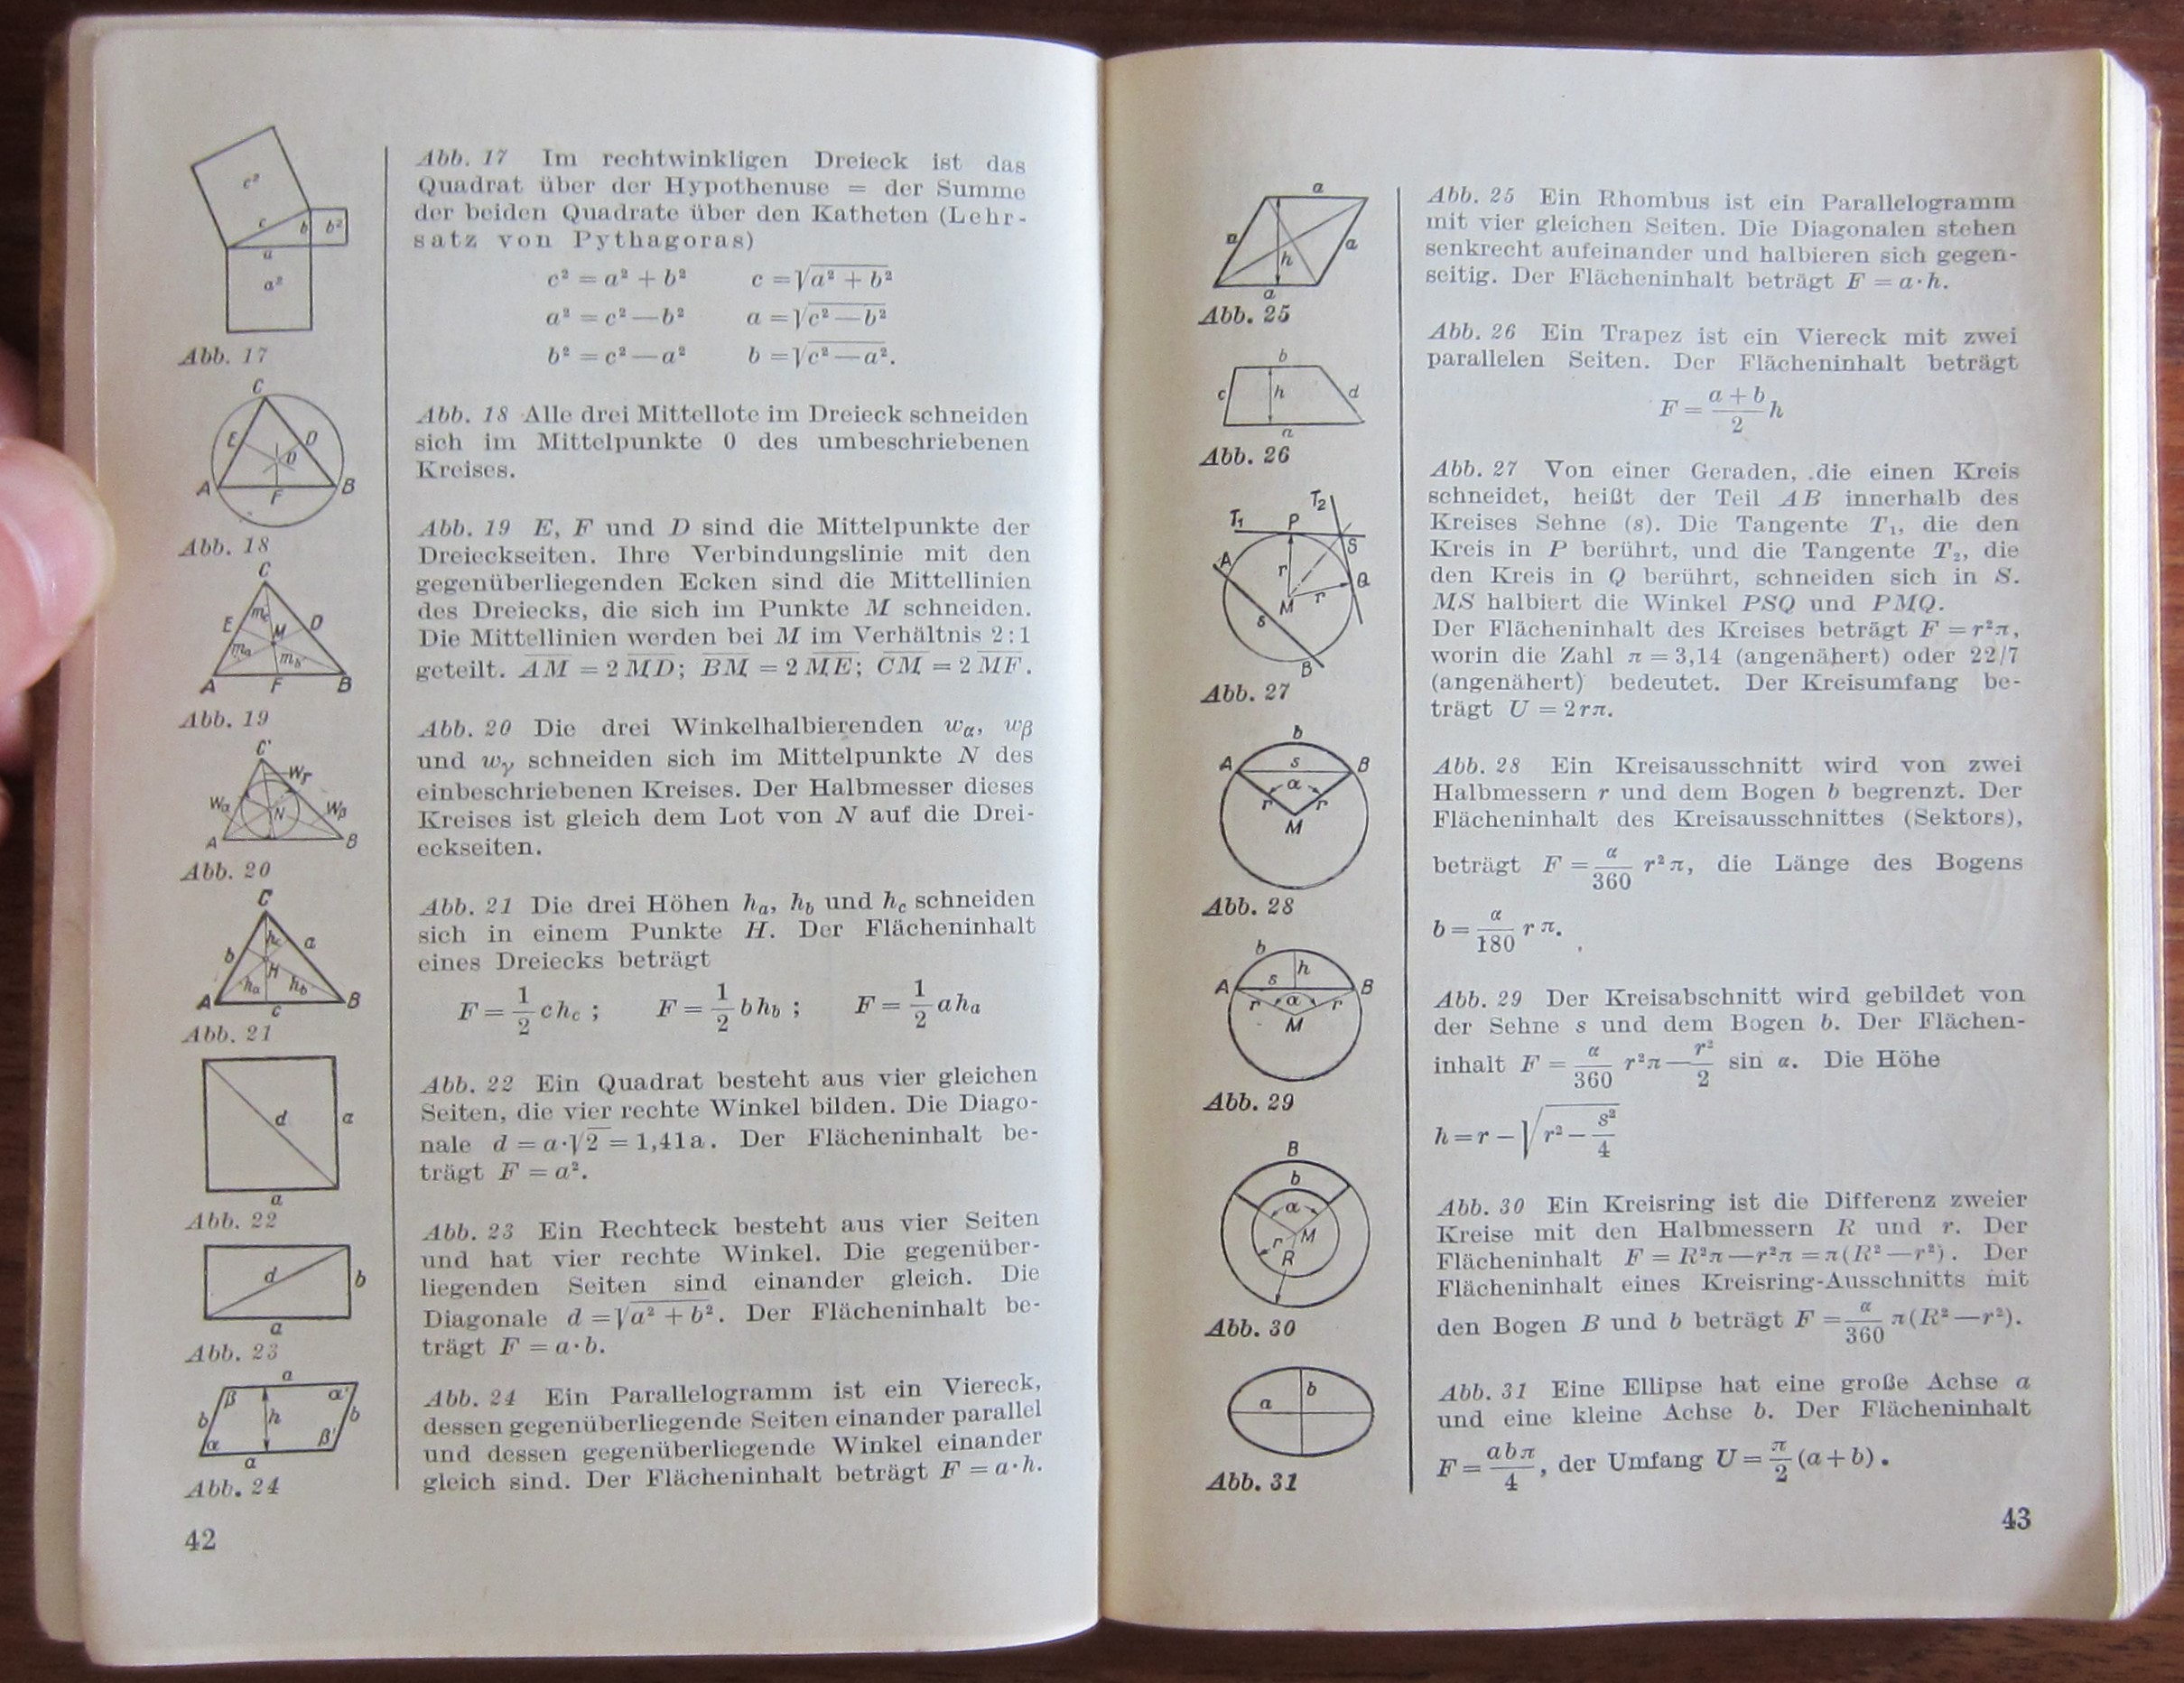 c²
c
b
b²
a
a²
Abb. 17
C
E
D
0
A
F
B
Abb. 18
C
m_c
E
M
D
m_a
m_b
A
F
B
Abb. 19
C
Wγ
Wα
N
Wβ
A
B
Abb. 20
C
h_c
a
b
H
h_a
h_b
A
c
B
Abb. 21
d
a
a
Abb. 22
d
b
a
Abb. 23
a
β
α'
b
h
b
α
β'
a
Abb. 24
42
Abb. 17 Im rechtwinkligen Dreieck ist das
Quadrat über der Hypothenuse = der Summe
der beiden Quadrate über den Katheten (Lehr-
satz von Pythagoras)
c² = a² + b² c = √(a² + b²)
a² = c² — b² a = √(c² — b²)
b² = c² — a² b = √(c² — a²).
Abb. 18 Alle drei Mittellote im Dreieck schneiden
sich im Mittelpunkte 0 des umbeschriebenen
Kreises.
Abb. 19 E, F und D sind die Mittelpunkte der
Dreieckseiten. Ihre Verbindungslinie mit den
gegenüberliegenden Ecken sind die Mittellinien
des Dreiecks, die sich im Punkte M schneiden.
Die Mittellinien werden bei M im Verhältnis 2:1
geteilt. AM = 2 MD; BM = 2 ME; CM = 2 MF.
Abb. 20 Die drei Winkelhalbierenden wα, wβ
und wγ schneiden sich im Mittelpunkte N des
einbeschriebenen Kreises. Der Halbmesser dieses
Kreises ist gleich dem Lot von N auf die Drei-
eckseiten.
Abb. 21 Die drei Höhen h_a, h_b und h_c schneiden
sich in einem Punkte H. Der Flächeninhalt
eines Dreiecks beträgt
F = 1/2 ch_c ; F = 1/2 bh_b ; F = 1/2 ah_a
Abb. 22 Ein Quadrat besteht aus vier gleichen
Seiten, die vier rechte Winkel bilden. Die Diago-
nale d = a·√2 = 1,41a. Der Flächeninhalt be-
trägt F = a².
Abb. 23 Ein Rechteck besteht aus vier Seiten
und hat vier rechte Winkel. Die gegenüber-
liegenden Seiten sind einander gleich. Die
Diagonale d = √(a² + b²). Der Flächeninhalt be-
trägt F = a·b.
Abb. 24 Ein Parallelogramm ist ein Viereck,
dessen gegenüberliegende Seiten einander parallel
und dessen gegenüberliegende Winkel einander
gleich sind. Der Flächeninhalt beträgt F = a·h.
a
a
a
h
a
Abb. 25
b
c
h
d
a
Abb. 26
T₂
T₁
P
S
A
r
Q
M
r
s
B
Abb. 27
b
A
s
B
α
r
r
M
Abb. 28
b
h
A
s
B
r
α
r
M
Abb. 29
B
b
α
r
M
R
Abb. 30
b
a
Abb. 31
Abb. 25 Ein Rhombus ist ein Parallelogramm
mit vier gleichen Seiten. Die Diagonalen stehen
senkrecht aufeinander und halbieren sich gegen-
seitig. Der Flächeninhalt beträgt F = a·h.
Abb. 26 Ein Trapez ist ein Viereck mit zwei
parallelen Seiten. Der Flächeninhalt beträgt
F = (a + b)/2 h
Abb. 27 Von einer Geraden, die einen Kreis
schneidet, heißt der Teil AB innerhalb des
Kreises Sehne (s). Die Tangente T₁, die den
Kreis in P berührt, und die Tangente T₂, die
den Kreis in Q berührt, schneiden sich in S.
MS halbiert die Winkel PSQ und PMQ.
Der Flächeninhalt des Kreises beträgt F = r²π,
worin die Zahl π = 3,14 (angenähert) oder 22/7
(angenähert) bedeutet. Der Kreisumfang be-
trägt U = 2rπ.
Abb. 28 Ein Kreisausschnitt wird von zwei
Halbmessern r und dem Bogen b begrenzt. Der
Flächeninhalt des Kreisausschnittes (Sektors),
beträgt F = α/360 r²π, die Länge des Bogens
b = α/180 r π.
Abb. 29 Der Kreisabschnitt wird gebildet von
der Sehne s und dem Bogen b. Der Flächen-
inhalt F = α/360 r²π — r²/2 sin α. Die Höhe
h = r − √(r² − s²/4)
Abb. 30 Ein Kreisring ist die Differenz zweier
Kreise mit den Halbmessern R und r. Der
Flächeninhalt F = R²π — r²π = π(R² — r²). Der
Flächeninhalt eines Kreisring-Ausschnitts mit
den Bogen B und b beträgt F = α/360 π(R² — r²).
Abb. 31 Eine Ellipse hat eine große Achse a
und eine kleine Achse b. Der Flächeninhalt
F = abπ/4, der Umfang U = π/2 (a + b).
43